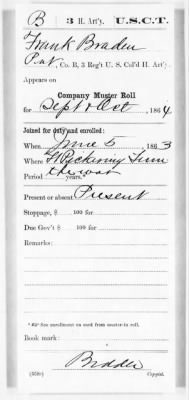 B 3 H. Art'y. U.S.C.T.
Frank Braden
Pvt, Co. B, 3 Reg't U. S. Col'd H. Art'y.
Appears on
Company Muster Roll
for Sept & Oct, 1864
Joined for duty and enrolled:
When June 5, 1863
Where Ft Pickering Tenn
Period the war years.*
Present or absent Present
Stoppage, $ 100 for
Due Gov't $ 100 for
Remarks:
*See enrollment on card from muster-in roll.
Book mark:
(358c) Copyist.